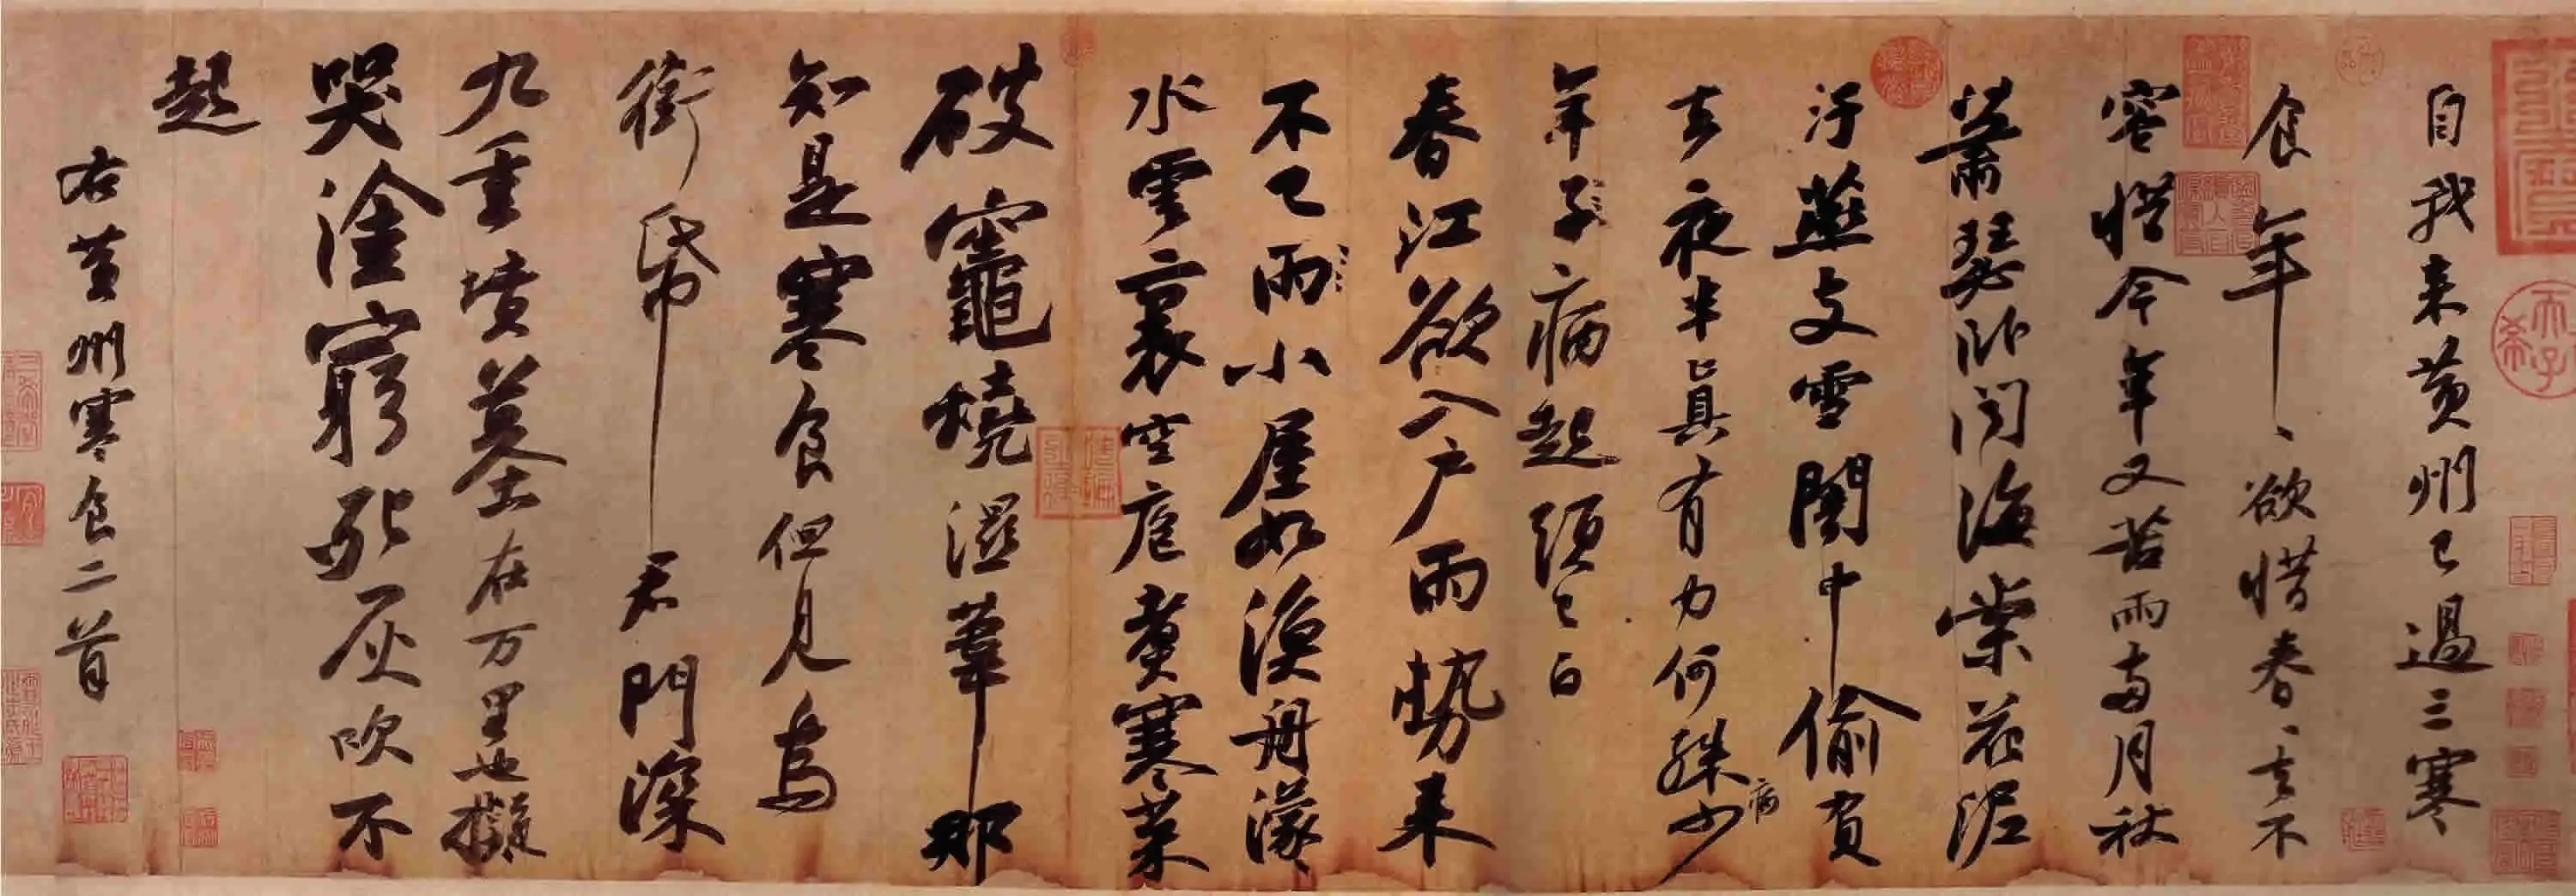 自我来黄州已過三寒
食年〻欲惜春〻去不
容惜今年又苦雨兩月秋
蕭瑟卧聞海棠花泥
汙燕支雪闇中偷負
去夜半真有力何殊少
病
年子病起頭已白
春江欲入户雨勢来
不已雨小屋如漁舟濛〻
水雲裏空庖煮寒菜
破竈燒濕葦那
知是寒食但見烏
銜帋君門深
九重墳墓在万里也擬
哭塗窮死灰吹不
起
右黄州寒食二首
天子